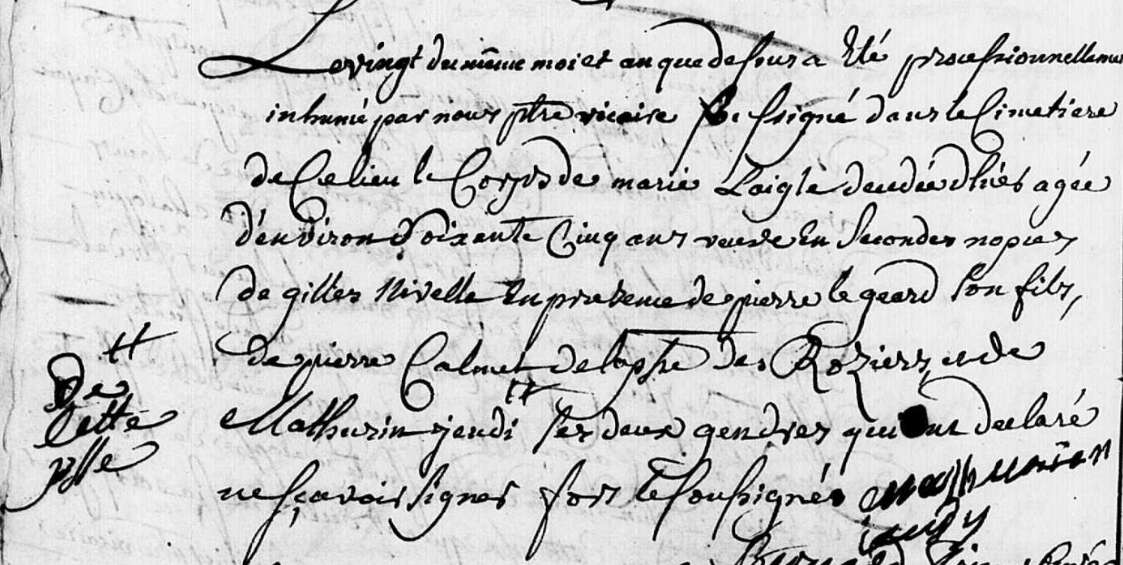 Le vingt du même moi et an que dessus a Eté processionnellement
inhumé par nous ptre vicaire soussigné dans le Cimetiere
de Ce lieu le Corps de marie Laigle decedée d'hiér agée
d'environ Soixante Cinq ans veuve En Secondes nopces
de gilles Nivelle En presence de pierre le geard son fils,
de pierre Calmet de la psse des Roziers, et de
Mathurin jeudi # ses deux gendres qui ont declaré
ne sçavoir signer fors le soussigné
# De
cette
psse
mathurin
jeudy